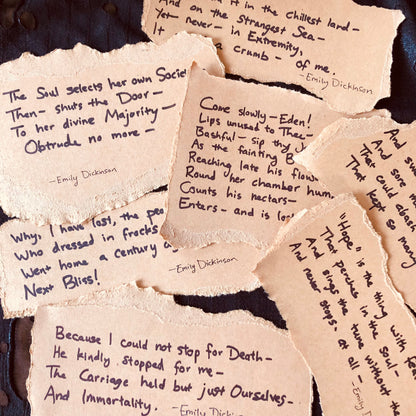 it in the chillest land—
And on the Strangest Sea—
Yet—never—in Extremity,
It a crumb—of me.
—Emily Dickinson
The Soul selects her own Societ
Then—shuts the Door—
To her divine Majority—
Obtrude no more—
—Emily Dickinson
Come slowly—Eden!
Lips unused to Thee—
Bashful—sip thy
As the fainting
Reaching late his flow
Round her chamber hum
Counts his nectars—
Enters—and is los
And
And sore
That could abash
That kept so many
Why, I have lost, the peo
Who dressed in frocks
Went home a century a
Next Bliss!
—Emily Dickinson
"Hope" is the thing with
That perches in the soul—
And sings the tune without th
And never stops, at all—
—Emily
Because I could not stop for Death—
He kindly stopped for me—
The Carriage held but just Ourselves—
And Immortality.
—Emily Dickinson